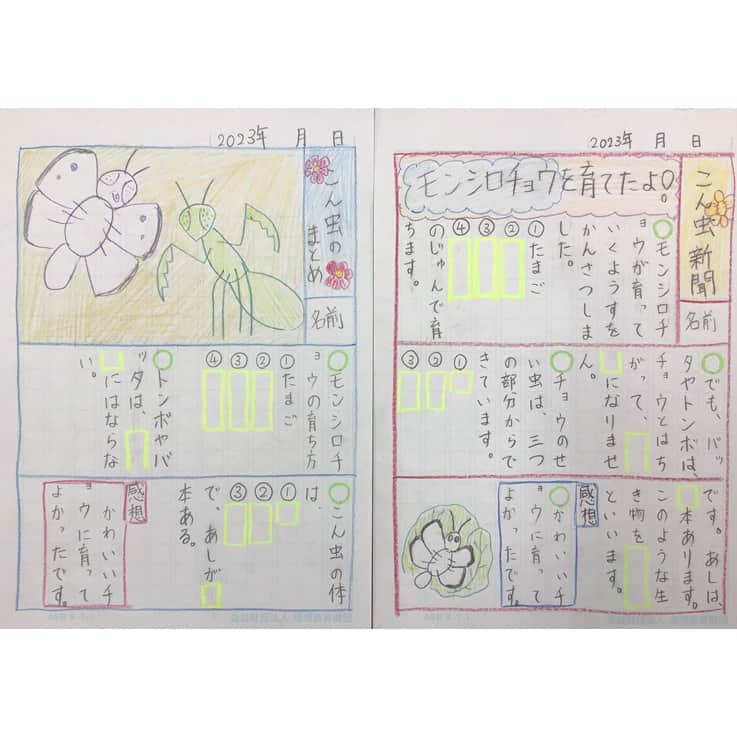 2023年 月 日
こん虫の
まとめ
名前
○モンシロチ
ョウの育ち方
①たまご
②
③
④
○トンボやバ
ッタは、
にはならな
い。
○こん虫の体
は、
①
②
③
で、あしが
本ある。
感想
かわいいチ
ョウに育って
よかったです。
2023年 月 日
こん虫新聞
名前
モンシロチョウを育てたよ○。
○モンシロチ
ョウが育って
いくようすを
かんさつしま
した。
①たまご
②
③
④
のじゅんで育
ちます。
○でも、バッ
タやトンボは、
チョウとはち
がって、
になりませ
ん。
○チョウのせ
い虫は、三つ
の部分からで
きています。
①
②
③
です。あしは、
本あります。
このような生
き物を
といいます。
感想
○かわいいチ
ョウに育って
よかったです。